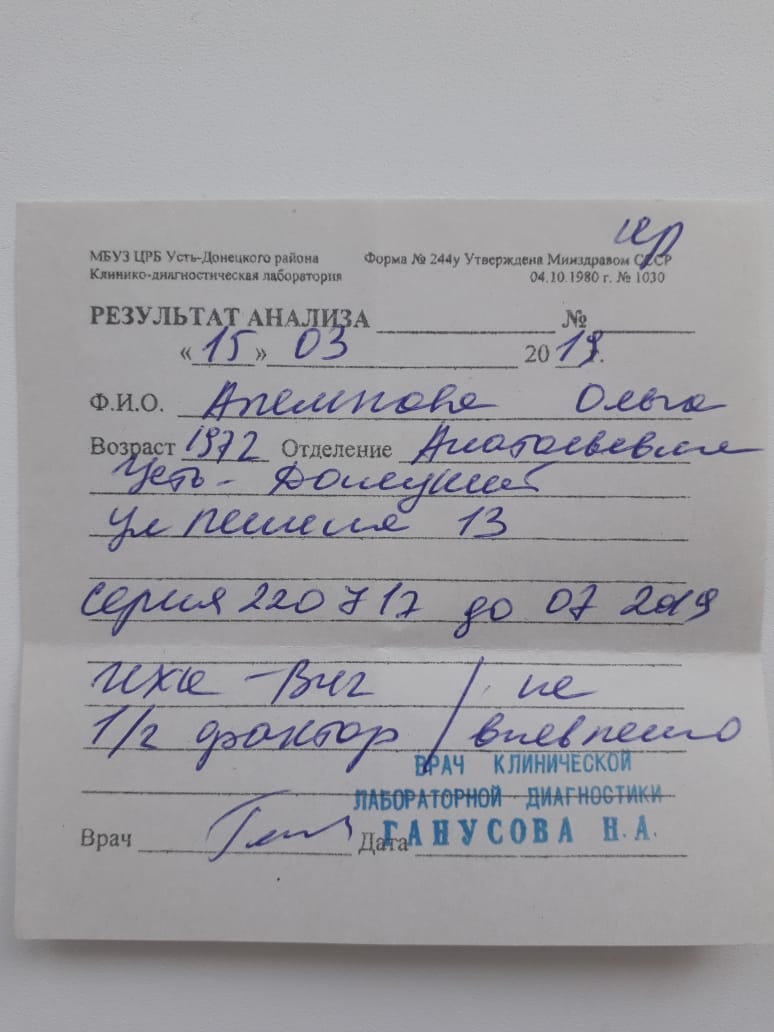 МБУЗ ЦРБ Усть-Донецкого района
Клинико-диагностическая лаборатория
Форма № 244у Утверждена Минздравом СССР
04.10.1980 г. № 1030
РЕЗУЛЬТАТ АНАЛИЗА №
«15» 03 2019.
Ф.И.О. Ольга
Возраст 1972 Отделение
Усть-Донецкий
ул 13
серия 220717 до 07 2019
ИХА - Вич / не
1/2 фактор / выявлено
ВРАЧ КЛИНИЧЕСКОЙ
ЛАБОРАТОРНОЙ ДИАГНОСТИКИ
ГАНУСОВА Н.А.
Врач Дата